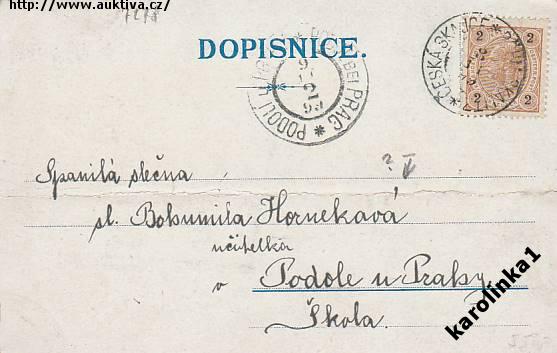 http://www.auktiva.cz/
DOPISNICE.
ČESKÁ SKALICE
2 2
2 2
PODOLÍ BEI PRAG
Spanilá slečna
sl. Bohumila Hornekavá
učitelka
v Podole u Prahy
Škola.
karolinka1